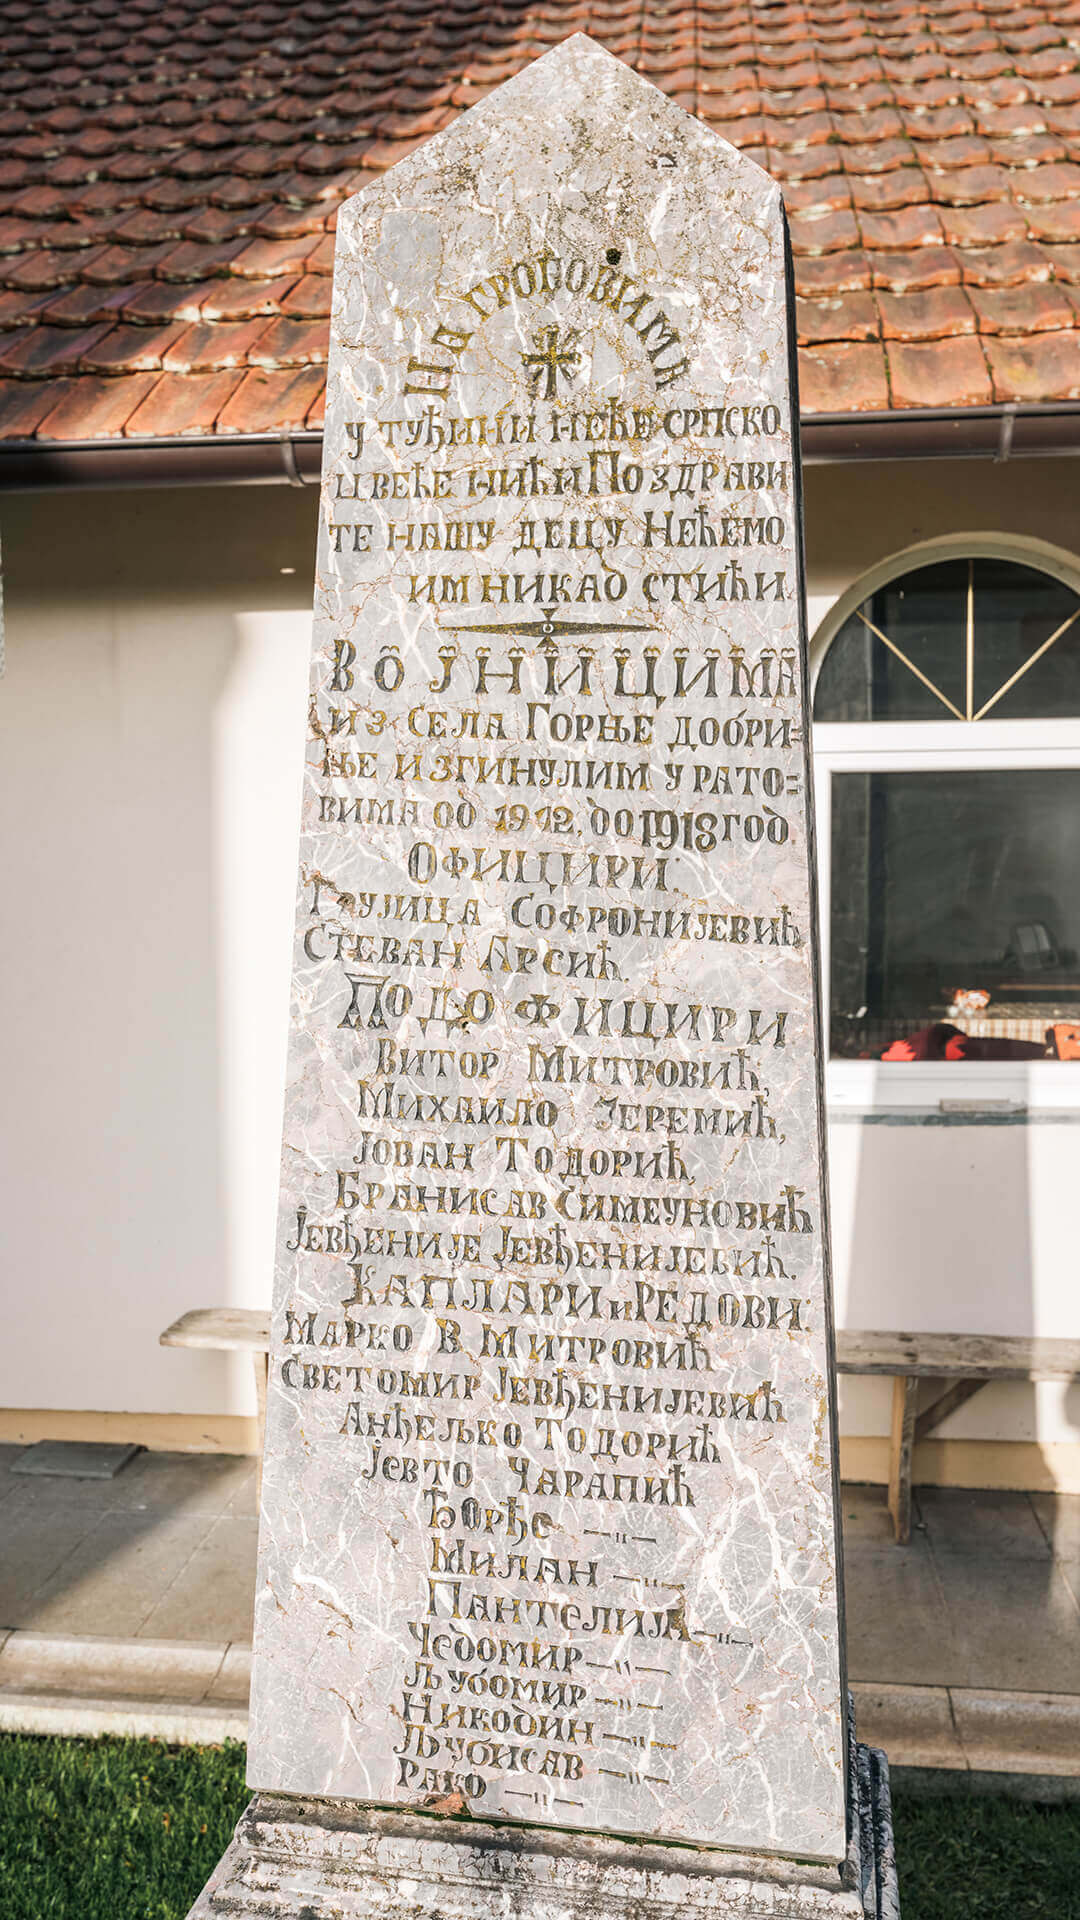 НА ГРОБОВИМА
У ТУЂИНИ НЕЋЕ СРПСКО
ЦВЕЋЕ НИЋИ ПОЗДРАВИ
ТЕ НАШУ ДЕЦУ НЕЋЕМО
ИМ НИКАД СТИЋИ
ВОЈНИЦИМА
ИЗ СЕЛА ГОРЊЕ ДОБРИ=
ЊЕ ИЗГИНУЛИМ У РАТО=
ВИМА ОД 1912, ДО 1918 ГОД.
ОФИЦИРИ:
ГРУЈИЦА СОФРОНИЈЕВИЋ
СТЕВАН АРСИЋ.
ПОДОФИЦИРИ
ВИТОР МИТРОВИЋ,
МИХАИЛО ЈЕРЕМИЋ,
ЈОВАН ТОДОРИЋ,
БРАНИСАВ СИМЕУНОВИЋ
ЈЕВЂЕНИЈЕ ЈЕВЂЕНИЈЕВИЋ.
КАПЛАРИ И РЕДОВИ:
МАРКО В МИТРОВИЋ
СВЕТОМИР ЈЕВЂЕНИЈЕВИЋ
АНЂЕЉКО ТОДОРИЋ
ЈЕВТО ЧАРАПИЋ
ЂОРЂЕ —״—
МИЛАН —״—
ПАНТЕЛИЈА —״—
ЧЕДОМИР —״—
ЉУБОМИР —״—
НИКОДИН —״—
ЉУБИСАВ —״—
РАКО —״—